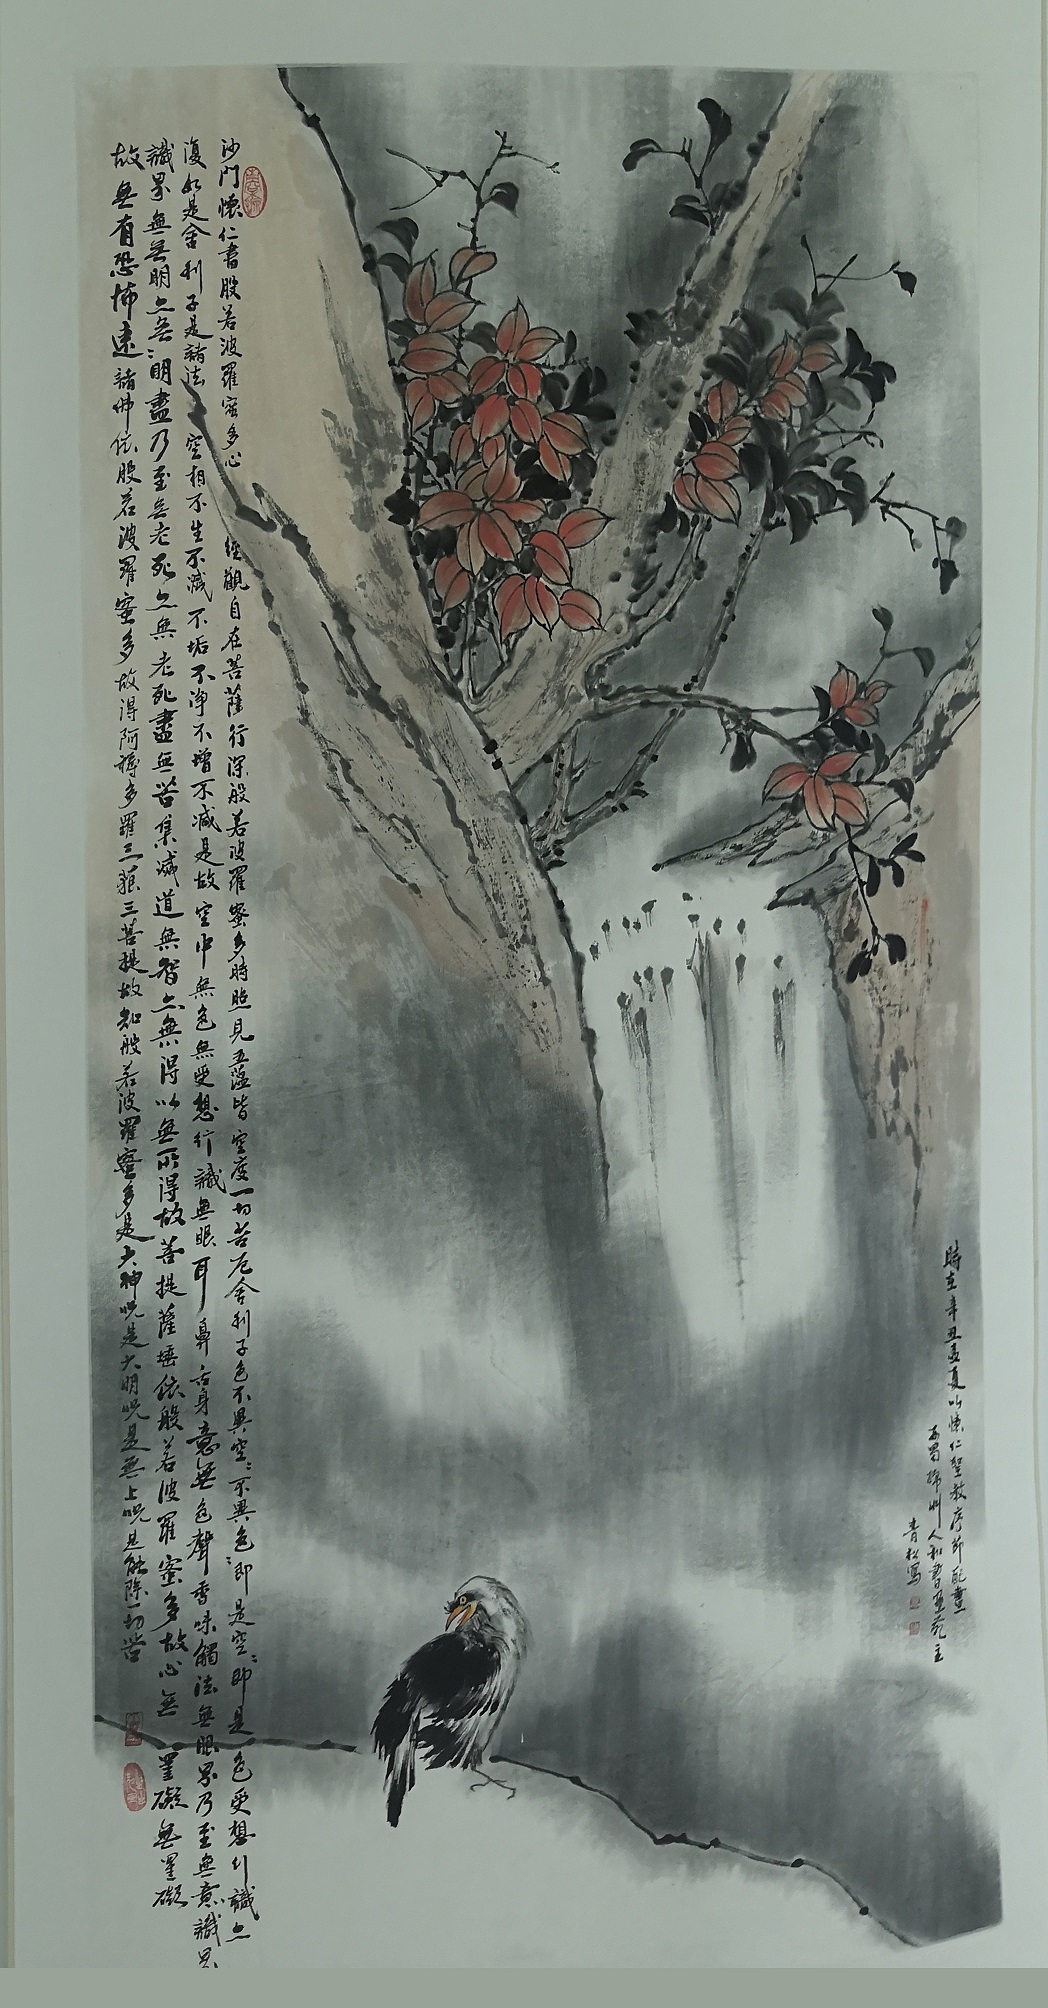 沙門懷仁書般若波羅蜜多心經觀自在菩薩行深般若波羅蜜多時照見五蘊皆空度一切苦厄舍利子色不異空〻不異色〻即是空〻即是色受想行識亦
復如是舍利子是諸法空相不生不滅不垢不淨不增不減是故空中無色無受想行識無眼耳鼻舌身意無色聲香味觸法無眼界乃至無意識界
識界無無明亦無〻明盡乃至無老死亦無老死盡無苦集滅道無智亦無得以無所得故菩提薩埵依般若波羅蜜多故心無罣礙無罣礙
故無有恐怖遠諸佛依般若波羅蜜多故得阿耨多羅三藐三菩提故知般若波羅蜜多是大神咒是大明咒是無上咒是能除一切苦
時在辛丑孟夏以懷仁聖教序節配畫
西蜀綿州人和書畫苑主
青松寫